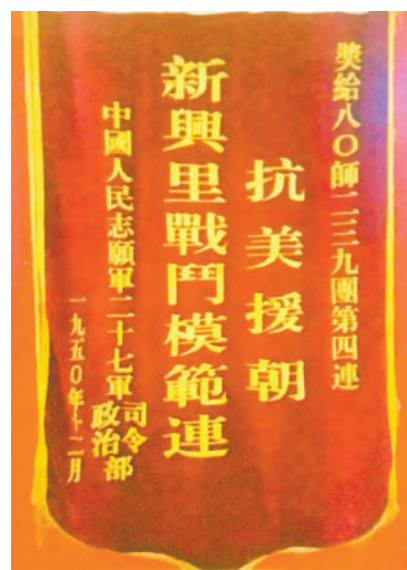 獎給八〇師二三九團第四連
抗美援朝
新興里戰鬥模範連
中國人民志願軍二十七軍司令政治部
一九五〇年十二月